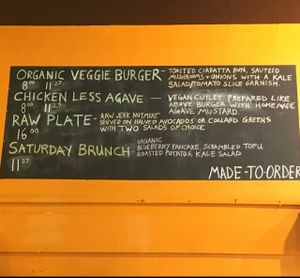 ORGANIC VEGGIE BURGER - TOASTED CIABATTA BUN, SAUTEED
MUSHROOMS + ONIONS WITH A KALE
8.00 11.27 SALAD/TOMATO SLICE GARNISH.
CHICKEN LESS AGAVE - VEGAN CUTLET PREPARED LIKE
8.00 11.27 ABOVE BURGER WITH HOMEMADE
AGAVE MUSTARD.
RAW PLATE - RAW JERK NUTMEAT
SERVED ON HALVED AVOCADOS OR COLLARD GREENS
16.00 WITH TWO SALADS OF CHOICE
SATURDAY BRUNCH ORGANIC
BLUEBERRY PANCAKE, SCRAMBLED TOFU,
11.27 ROASTED POTATOS, KALE SALAD
MADE-TO-ORDER